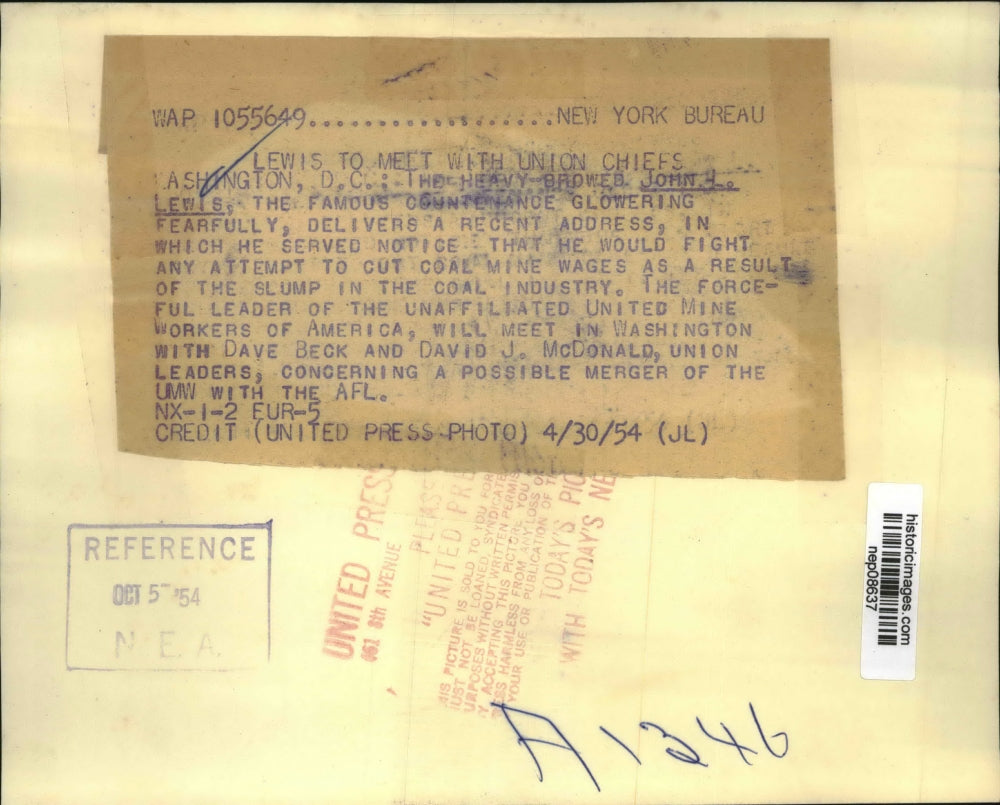 WAP 1055649...................NEW YORK BUREAU
LEWIS TO MEET WITH UNION CHIEFS
WASHINGTON, D.C.: THE HEAVY-BROWED JOHN L.
LEWIS, THE FAMOUS COUNTENANCE GLOWERING
FEARFULLY, DELIVERS A RECENT ADDRESS, IN
WHICH HE SERVED NOTICE THAT HE WOULD FIGHT
ANY ATTEMPT TO CUT COAL MINE WAGES AS A RESULT
OF THE SLUMP IN THE COAL INDUSTRY. THE FORCE-
FUL LEADER OF THE UNAFFILIATED UNITED MINE
WORKERS OF AMERICA, WILL MEET IN WASHINGTON
WITH DAVE BECK AND DAVID J. MCDONALD, UNION
LEADERS, CONCERNING A POSSIBLE MERGER OF THE
UMW WITH THE AFL.
NX-1-2 EUR-5
CREDIT (UNITED PRESS PHOTO) 4/30/54 (JL)
REFERENCE
OCT 5 '54
N. E. A.
UNITED PRESS
461 8th AVENUE
PLEAS
"UNITED PRE
HIS PICTURE IS SOLD TO YOU FOR
UST NOT BE LOANED, SYNDICATE
URPOSES WITHOUT WRITTEN PERMIS
Y ACCEPTING THIS PICTURE YOU
ESS HARMLESS FROM ANY LOSS O
YOUR USE OR PUBLICATION OF T
TODAY'S PIC
WITH TODAY'S NE
historicimages.com
nep08637
A 1346